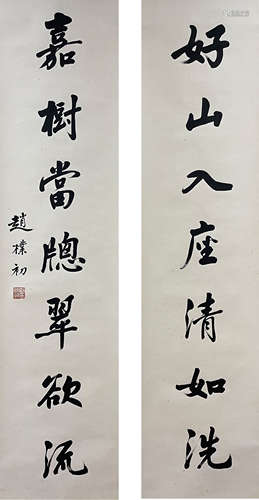 好山入座清如洗
嘉樹當牕翠欲流
趙樸初